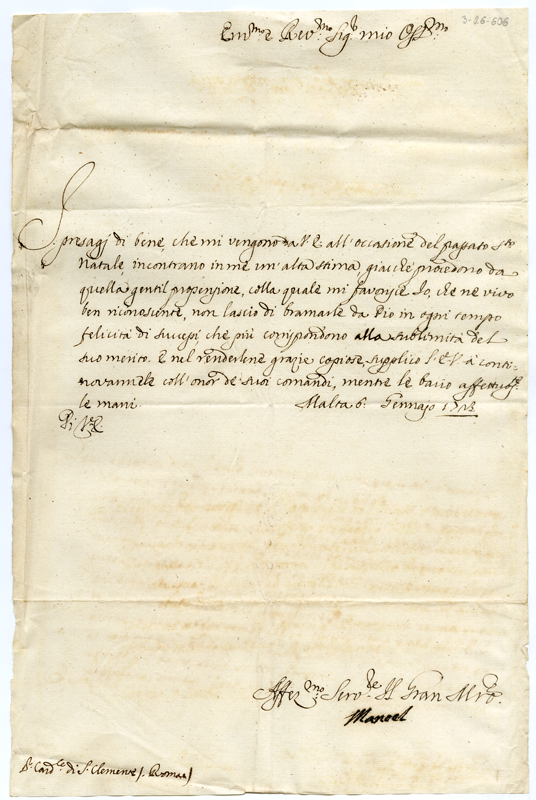 3-26-606
Em.mo e Rev.mo Sig.r mio Oss.mo
I presagj di bene, che mi vengono da V.E. all'occasione del passato S.to
Natale, incontrano in me un'alta stima, giacchè procedono da
quella gentil propensione, colla quale mi favorisce. Io, che ne vivo
ben riconoscente, non lascio di bramarle da Dio in ogni tempo
felicità di successi che più corrispondono alla sublimità del
suo merito. E nel renderlene grazie copiose, supplico V.E. à conti-
novarmele coll'onor de' suoi comandi, mentre le bacio affettuos.e
le mani. Malta 6. Gennajo
Di V.E.
Affez.mo Serv.re Il Gran M.ro
Manoel
S.r Card.le di S. Clemente (Roma)